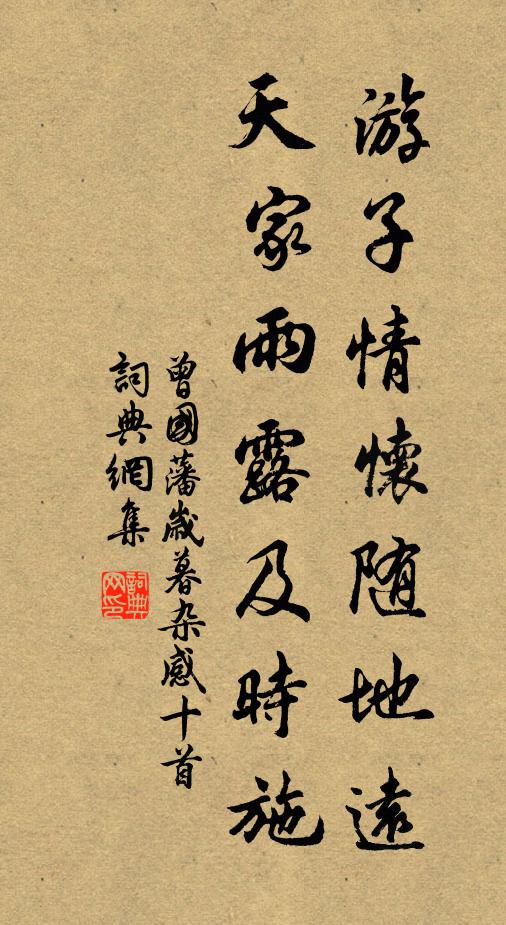 游子情懷随地遠
天家雨露及時施
曾國藩歲暮杂感十首
詞典網集
詞典网印